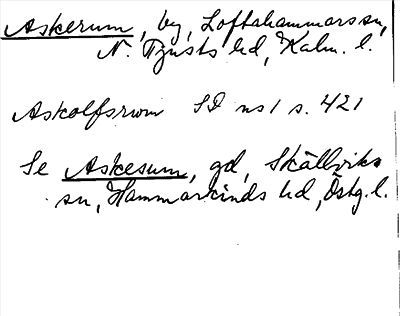 Askerum, by, Loftahammars sn,
N. Tjusts hd, Kalm. l.
Askolfsrwm SD ns 1 s. 421
Se Askesum, gd, Skällviks
sn, Hammarkinds hd, Östg. l.